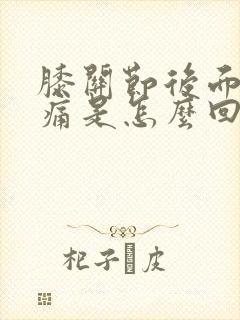 膝關節後面
痛是怎麼回
杞子 皮